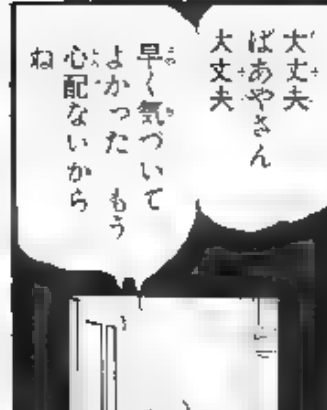 大丈夫
ばあやさん
大丈夫
早く気づいて
よかった もう
心配ないから
ね